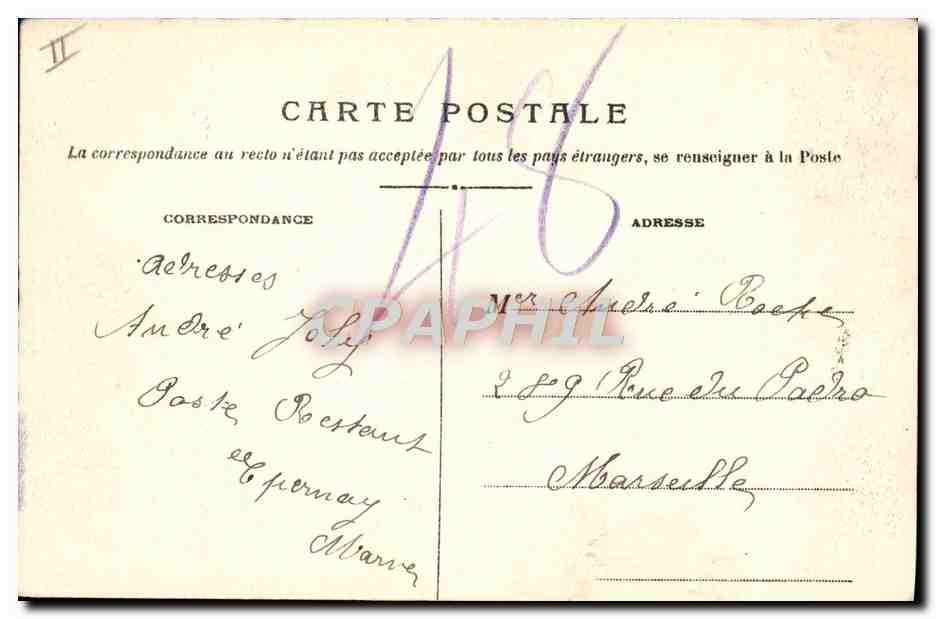 II
48
CARTE POSTALE
La correspondance au recto n'étant pas acceptée par tous les pays étrangers, se renseigner à la Poste
CORRESPONDANCE
adresses
André Joly
Poste Restant
Epernay
Marne
ADRESSE
Mer André
289 Rue du Padro
Marseille
CPAPHIL